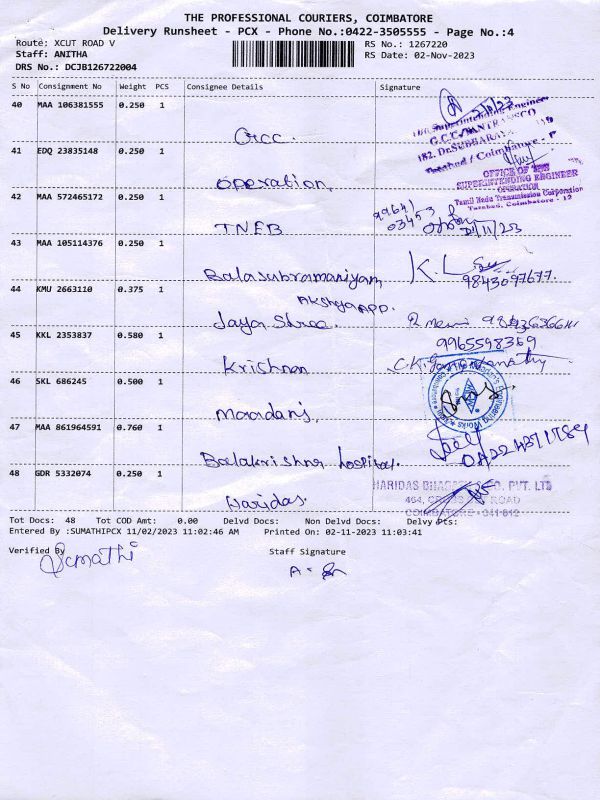 THE PROFESSIONAL COURIERS, COIMBATORE
Delivery Runsheet - PCX - Phone No.:0422-3505555 - Page No.:4
Route: XCUT ROAD V
RS No.: 1267220
Staff: ANITHA
RS Date: 02-Nov-2023
DRS No.: DCJB126722004
S No Consignment No Weight PCS Consignee Details Signature
40 MAA 106381555 0.250 1
Gcc.
G.C.C/TANTRANSCO
182, Dr.SUBBARAYA
Tatabad / Coimbatore
41 EDQ 23835148 0.250 1
operation,
OFFICE OF THE
SUPERINTENDING ENGINEER
OPERATION
Tamil Nadu Transmission Corporation
Tatabad, Coimbatore - 12
42 MAA 572465172 0.250 1
TNEB
99641
03453
2/11/23
43 MAA 105114376 0.250 1
Balasubramaniyam
Akshya APP.
9843097677.
44 KMU 2663110 0.375 1
Jaya Shree.
45 KKL 2353837 0.580 1
Krishnan
9965598369
46 SKL 686245 0.500 1
Maadani,
47 MAA 861964591 0.760 1
Balakrishna hospital.
48 GDR 5332074 0.250 1
Haridas.
HARIDAS BHAGAT & CO. PVT. LTD
464, CROSS CUT ROAD
COIMBATORE - 641 012
Tot Docs: 48 Tot COD Amt: 0.00 Delvd Docs: Non Delvd Docs: Delvy Pts:
Entered By :SUMATHIPCX 11/02/2023 11:02:46 AM Printed On: 02-11-2023 11:03:41
Verified By
Staff Signature
Sumathi